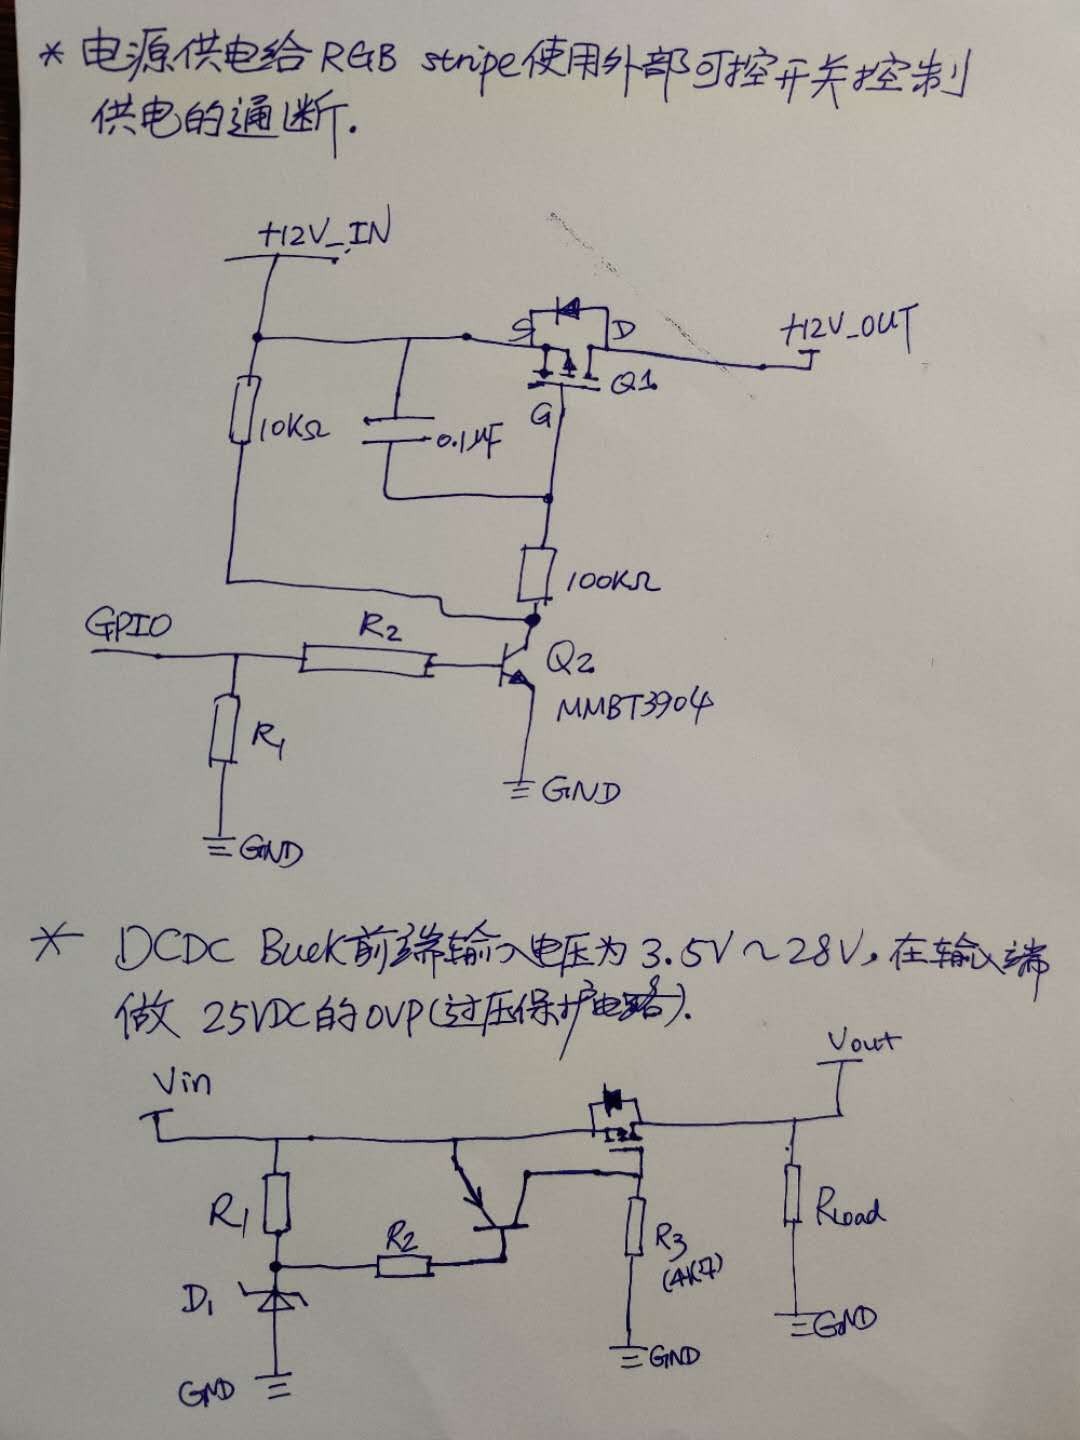 * 电源供电给RGB stripe使用外部可控开关控制
供电的通断.
+12V_IN
S
D
+12V_OUT
Q1
G
10KΩ
0.1μF
100KΩ
GPIO
R2
Q2
MMBT3904
R1
GND
GND
* DCDC Buck前端输入电压为3.5V~28V,在输入端
做 25VDC的OVP(过压保护电路).
Vout
Vin
R1
R2
R3
(4K7)
Rload
D1
GND
GND
GND